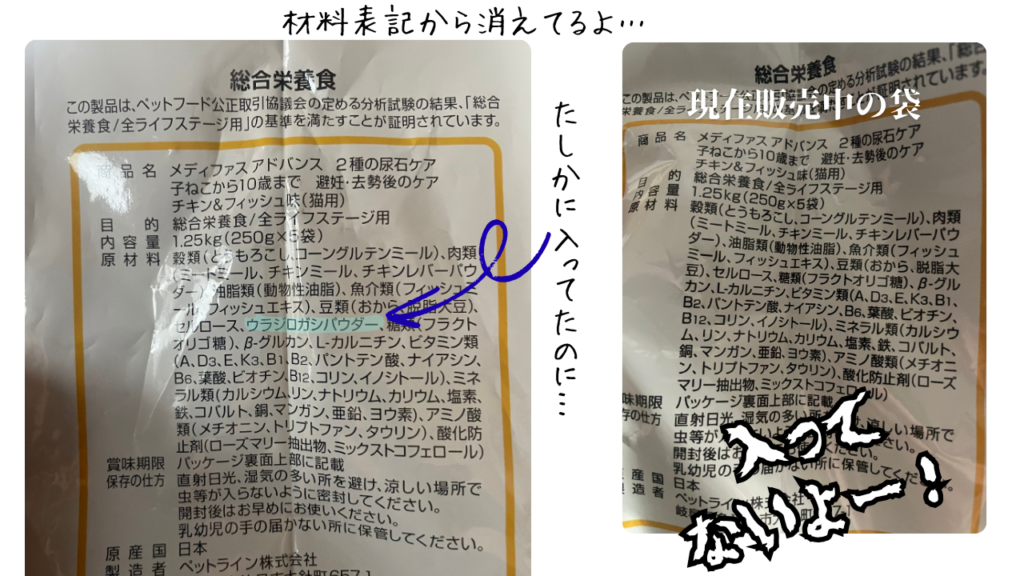 材料表記から消えてるよ…
総合栄養食
この製品は、ペットフード公正取引協議会の定める分析試験の結果、「総合
栄養食/全ライフステージ用」の基準を満たすことが証明されています。
商品名 メディファス アドバンス 2種の尿石ケア
子ねこから10歳まで 避妊・去勢後のケア
チキン&フィッシュ味(猫用)
目的 総合栄養食/全ライフステージ用
内容量 1.25kg(250g×5袋)
原材料 穀類(とうもろこし、コーングルテンミール)、肉類
(ミートミール、チキンミール、チキンレバーパウ
ダー)、油脂類(動物性油脂)、魚介類(フィッシュミ
ール、フィッシュエキス)、豆類(おから、脱脂大豆)、
セルロース、ウラジロガシパウダー、糖類(フラクト
オリゴ糖)、β-グルカン、L-カルニチン、ビタミン類
(A、D3、E、K3、B1、B2、パントテン酸、ナイアシン、
B6、葉酸、ビオチン、B12、コリン、イノシトール)、ミネ
ラル類(カルシウム、リン、ナトリウム、カリウム、塩素、
鉄、コバルト、銅、マンガン、亜鉛、ヨウ素)、アミノ酸
類(メチオニン、トリプトファン、タウリン)、酸化防
止剤(ローズマリー抽出物、ミックストコフェロール)
賞味期限 パッケージ裏面上部に記載
保存の仕方 直射日光、湿気の多い所を避け、涼しい場所で
虫等が入らないように密封してください。
開封後はお早めにお使いください。
乳幼児の手の届かない所に保管してください。
原産国 日本
製造者 ペットライン株式会社
たしかに入ってたのに…
総合栄養食
この製品は、ペットフード公正取引協議会の定める分析試験の結果、「総合
栄養食/全ライフステージ用」の基準を満たすことが証明されています。
現在販売中の袋
商品名 メディファス アドバンス 2種の尿石ケア
子ねこから10歳まで 避妊・去勢後のケア
チキン&フィッシュ味(猫用)
目的 総合栄養食/全ライフステージ用
内容量 1.25kg(250g×5袋)
原材料 穀類(とうもろこし、コーングルテンミール)、肉類
(ミートミール、チキンミール、チキンレバーパウ
ダー)、油脂類(動物性油脂)、魚介類(フィッシュ
ミール、フィッシュエキス)、豆類(おから、脱脂大
豆)、セルロース、糖類(フラクトオリゴ糖)、β-グル
カン、L-カルニチン、ビタミン類(A、D3、E、K3、B1、
B2、パントテン酸、ナイアシン、B6、葉酸、ビオチン、
B12、コリン、イノシトール)、ミネラル類(カルシウ
ム、リン、ナトリウム、カリウム、塩素、鉄、コバルト、
銅、マンガン、亜鉛、ヨウ素)、アミノ酸類(メチオニ
ン、トリプトファン、タウリン)、酸化防止剤(ローズ
マリー抽出物、ミックストコフェロール)
賞味期限 パッケージ裏面上部に記載
保存の仕方 直射日光、湿気の多い所 涼しい場所で
虫等が してください。
開封後はお ください。
乳幼児の 届かない所に保管してください。
産国 日本
製造者 ペットライン株式会社
入って
ないよー!